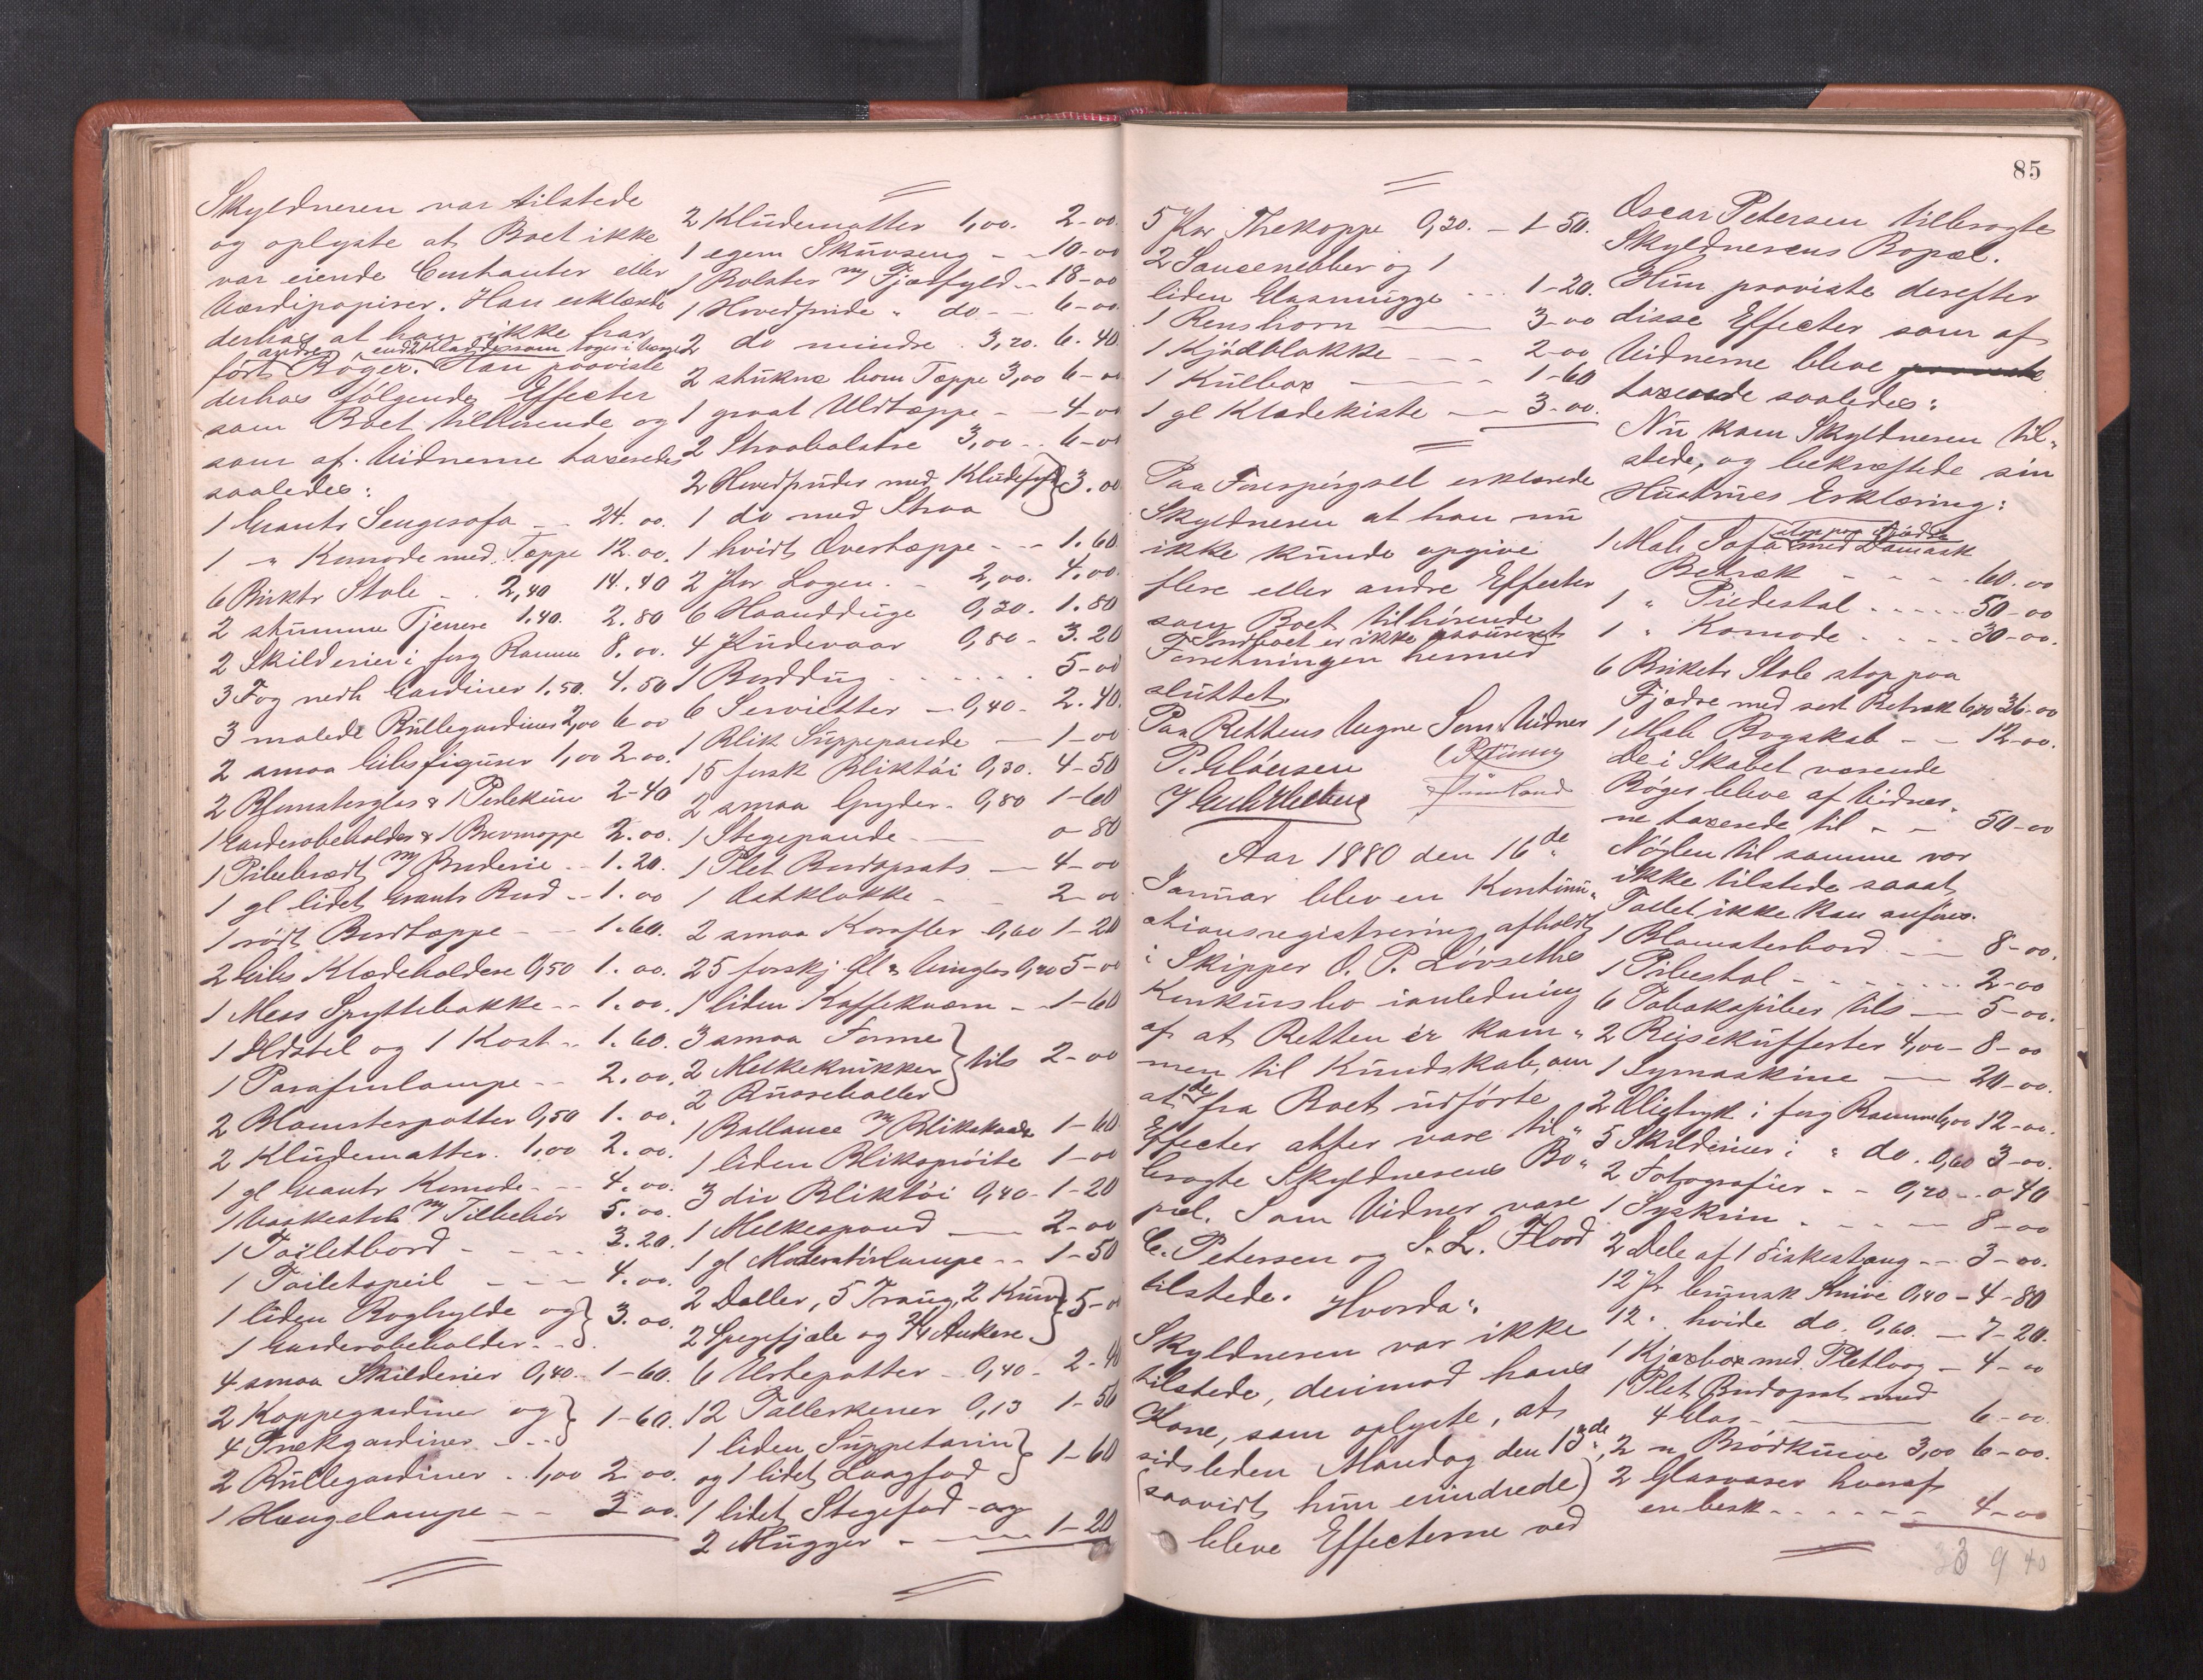 Skyldneren var tilstede
og oplyste at Boet ikke
var eiende Contanter eller
Værdipapirer. Han erklærede
derhos at han ikke har
andre end 2 Kladder som toges i
ført Bøger. Han paaviste
derhos følgende Effecter
som Boet tilhørende og
som af Vidnerne taxeredes
saaledes:
1 Sengesofa - - 24. 00.
1 " Komode med Tæppe 12. 00.
6 Birktr Stole - . 2,40 14. 40
2 stumme Tjenere 1.40. 2. 80
2 Skilderier i forg Ramme 8. 00.
3 Fag nedh Gardiner 1.50. 4. 50
3 malede Rullegardiner 2,00 6 00
2 smaa Gibsfigurer 1,00 2 00.
2 Blomsterglas & 1 2-40
1 Garderobeholder & 1 Brevmappe 2. 00.
1 Pibebrædt m/ Broderie - - 1. 20.
1 gl lidet Bord - - 1. 00
1 rødt Bordtæppe - - 1. 60.
2 Gibs Klædeholdere 0,50 1. 00.
1 Mess Spyttebakke - - 1. 00.
1 Ildstel og 1 Kost - - 1. 60.
1 Parafinlampe - - 2. 00.
2 Blomsterpotter 0,50 1. 00.
2 Kludematter. 1,00 2. 00.
1 gl Komode - - 4. 00.
1 Vaskestel m/ Tilbehør 5. 00.
1 Toiletbord - - - 3. 20.
1 Toiletspeil - - - 4. 00.
1 liden Boghylde og } 3. 00.
1 Garderobeholder - - }
4 smaa Skilderier 0,40 - 1-60.
2 Kappegardiner og } 1-60.
4 Trækgardiner - - }
2 Rullegardiner - . 1,00 2 00.
1 Hængelampe - - 3 00.
2 Kludematter 1,00. 2-00.
1 egen Skuvseng - - 10-00
1 Bolster m/ Fjærfyld - - 18-00
1 Hovedpude " do - - 6-00.
2 do mindre . 3,20. 6. 40
2 stukne bom Tæppe 3,00 6-00
1 graat Uldtæppe - - 4-00
2 Straabolstre 3,00 - . 6-00
2 Hovedpuder med Kludefyld } 3. 00
1 do med Straa
1 hvidt Overtæppe - - - 1. 60
2 Par Lagen. - 2,00. 4. 00.
6 Haandduge 0,30. 1. 80
4 Pudevaar 0,80 - 3. 20
1 Borddug - - - - - . 5-00
6 Servietter - 0,40 - 2. 40.
1 Blik Suppepande - 1-00
15 forsk Bliktøi 0,30. 4-50
2 smaa Gryder - 0,80 1-60
1 Stegepande - 0 80
1 Plet Bordopsats - 4-00
1 Ostklokke - - 2-00
2 smaa Karafler 0,60 1-20
25 forskj Gl & Vinglas 0,20 5-00
1 liden Kaffekværn - - 1-60
3 smaa Forme }
2 Melkekrukker } tils 2-00
2 }
1 Ballance m/ Blikskaale 1-60
1 liden Bliksprøite 1-00
3 div Bliktøi 0,40 - 1-20
1 Melkespand - 2-00
1 gl Moderatørlampe - - 1-50
2 Daller, 5 Traug, 2 } 5-00
2 Spegefjæle og 2/4 Ankere }
6 Urtepotter - 0,40 - 2-40
12 Tallerkener 0,13 1-56
1 liden Suppeterin } 1-60
og 1 lidet Laagfad }
1 lidet Stegefad og
2 Mugger - - - 1-20
85
5 Par Thekoppe 0,30. - 1-50.
2 Saucenebber og 1
liden Glasmugge - - - 1-20.
1 Renshorn - 3-00
1 Kjødblokke - - - 2-00
1 Kulbox - - 1-60
1 gl Klædekiste - - 3-00.
Paa Forespørgsel erklærede
Skyldneren at han nu
ikke kunde opgive
flere eller andre Effecter
som Boet tilhørende
Indboet er ikke assureret
Forretningen hermed
sluttet
Paa Rettens Vegne Som Vidner
P. Clausen
Aar 1880 den 16de
Januar blev en Kontinu-
ationsregistrering afholdt
i Skipper O. P. Løvseths
Konkursbo i anledning
af at Retten er kom-
men til Kundskab, om
at de fra Boet udførte
Effecter atter vare til-
bragte Skyldnerens Bo-
pæl. Som Vidner vare
C. Petersen og S. L. Flood
tilstede. Hvorda:
Skyldneren var ikke
tilstede, derimod hans
Kone, som oplyste, at
sidsleden Mandag den 13de,
(saavidt hun erindrede)
bleve Effecterne ved
Oscar Petersen tilbragte
Skyldnerens Bopæl.
Hun paaviste derefter
disse Effecter som af
Vidnerne bleve
taxerede saaledes:
Nu kom Skyldneren til-
stede, og bekræftede sin
Hustrues Erklæring:
stop paa Fjædre
1 Mah Sofa med Damask
Betræk - - - - 60. 00
1 " Piedestal - - - - 50-00
1 " Komode - - - - 30-00.
6 Birketr Stole stop paa
Fjædre med sort Betræk 6,00 36-00
1 Mah Bogskab - - 12-00.
De i Skabet værende
Bøger bleve af Vidner-
ne taxerede til - - 50-00
Nøglen til samme var
ikke tilstede saaat
Tallet ikke kan anføres.
1 Blomsterbord - - 8-00.
1 Pibestol - - - - 2-00
6 Tobakspiber tils - 5-00.
2 Reisekufferter 4,00 - 8-00
1 Symaskine - 20-00.
2 Olietryk i forg Ramme 6,00 12-00.
5 Skilderier i " do. 0,60 3-00.
2 Fotografier - - 0,20 - 0 40
1 Syskrin - - - 8-00
2 Dele af 1 Fiskestang - - 3-00.
12 Pr Knive 0,40 - 4-80
12 " hvide do. 0,60. - 7-20.
1 Kjæxbox med Pletlaag - 4-00
1 Plet Bordopsat med
4 Glas - 6-00.
2 " Brødkurve 3,00 6-00.
2 Glasvaser hvoraf
en besk - - - - 4-00
3 9 40